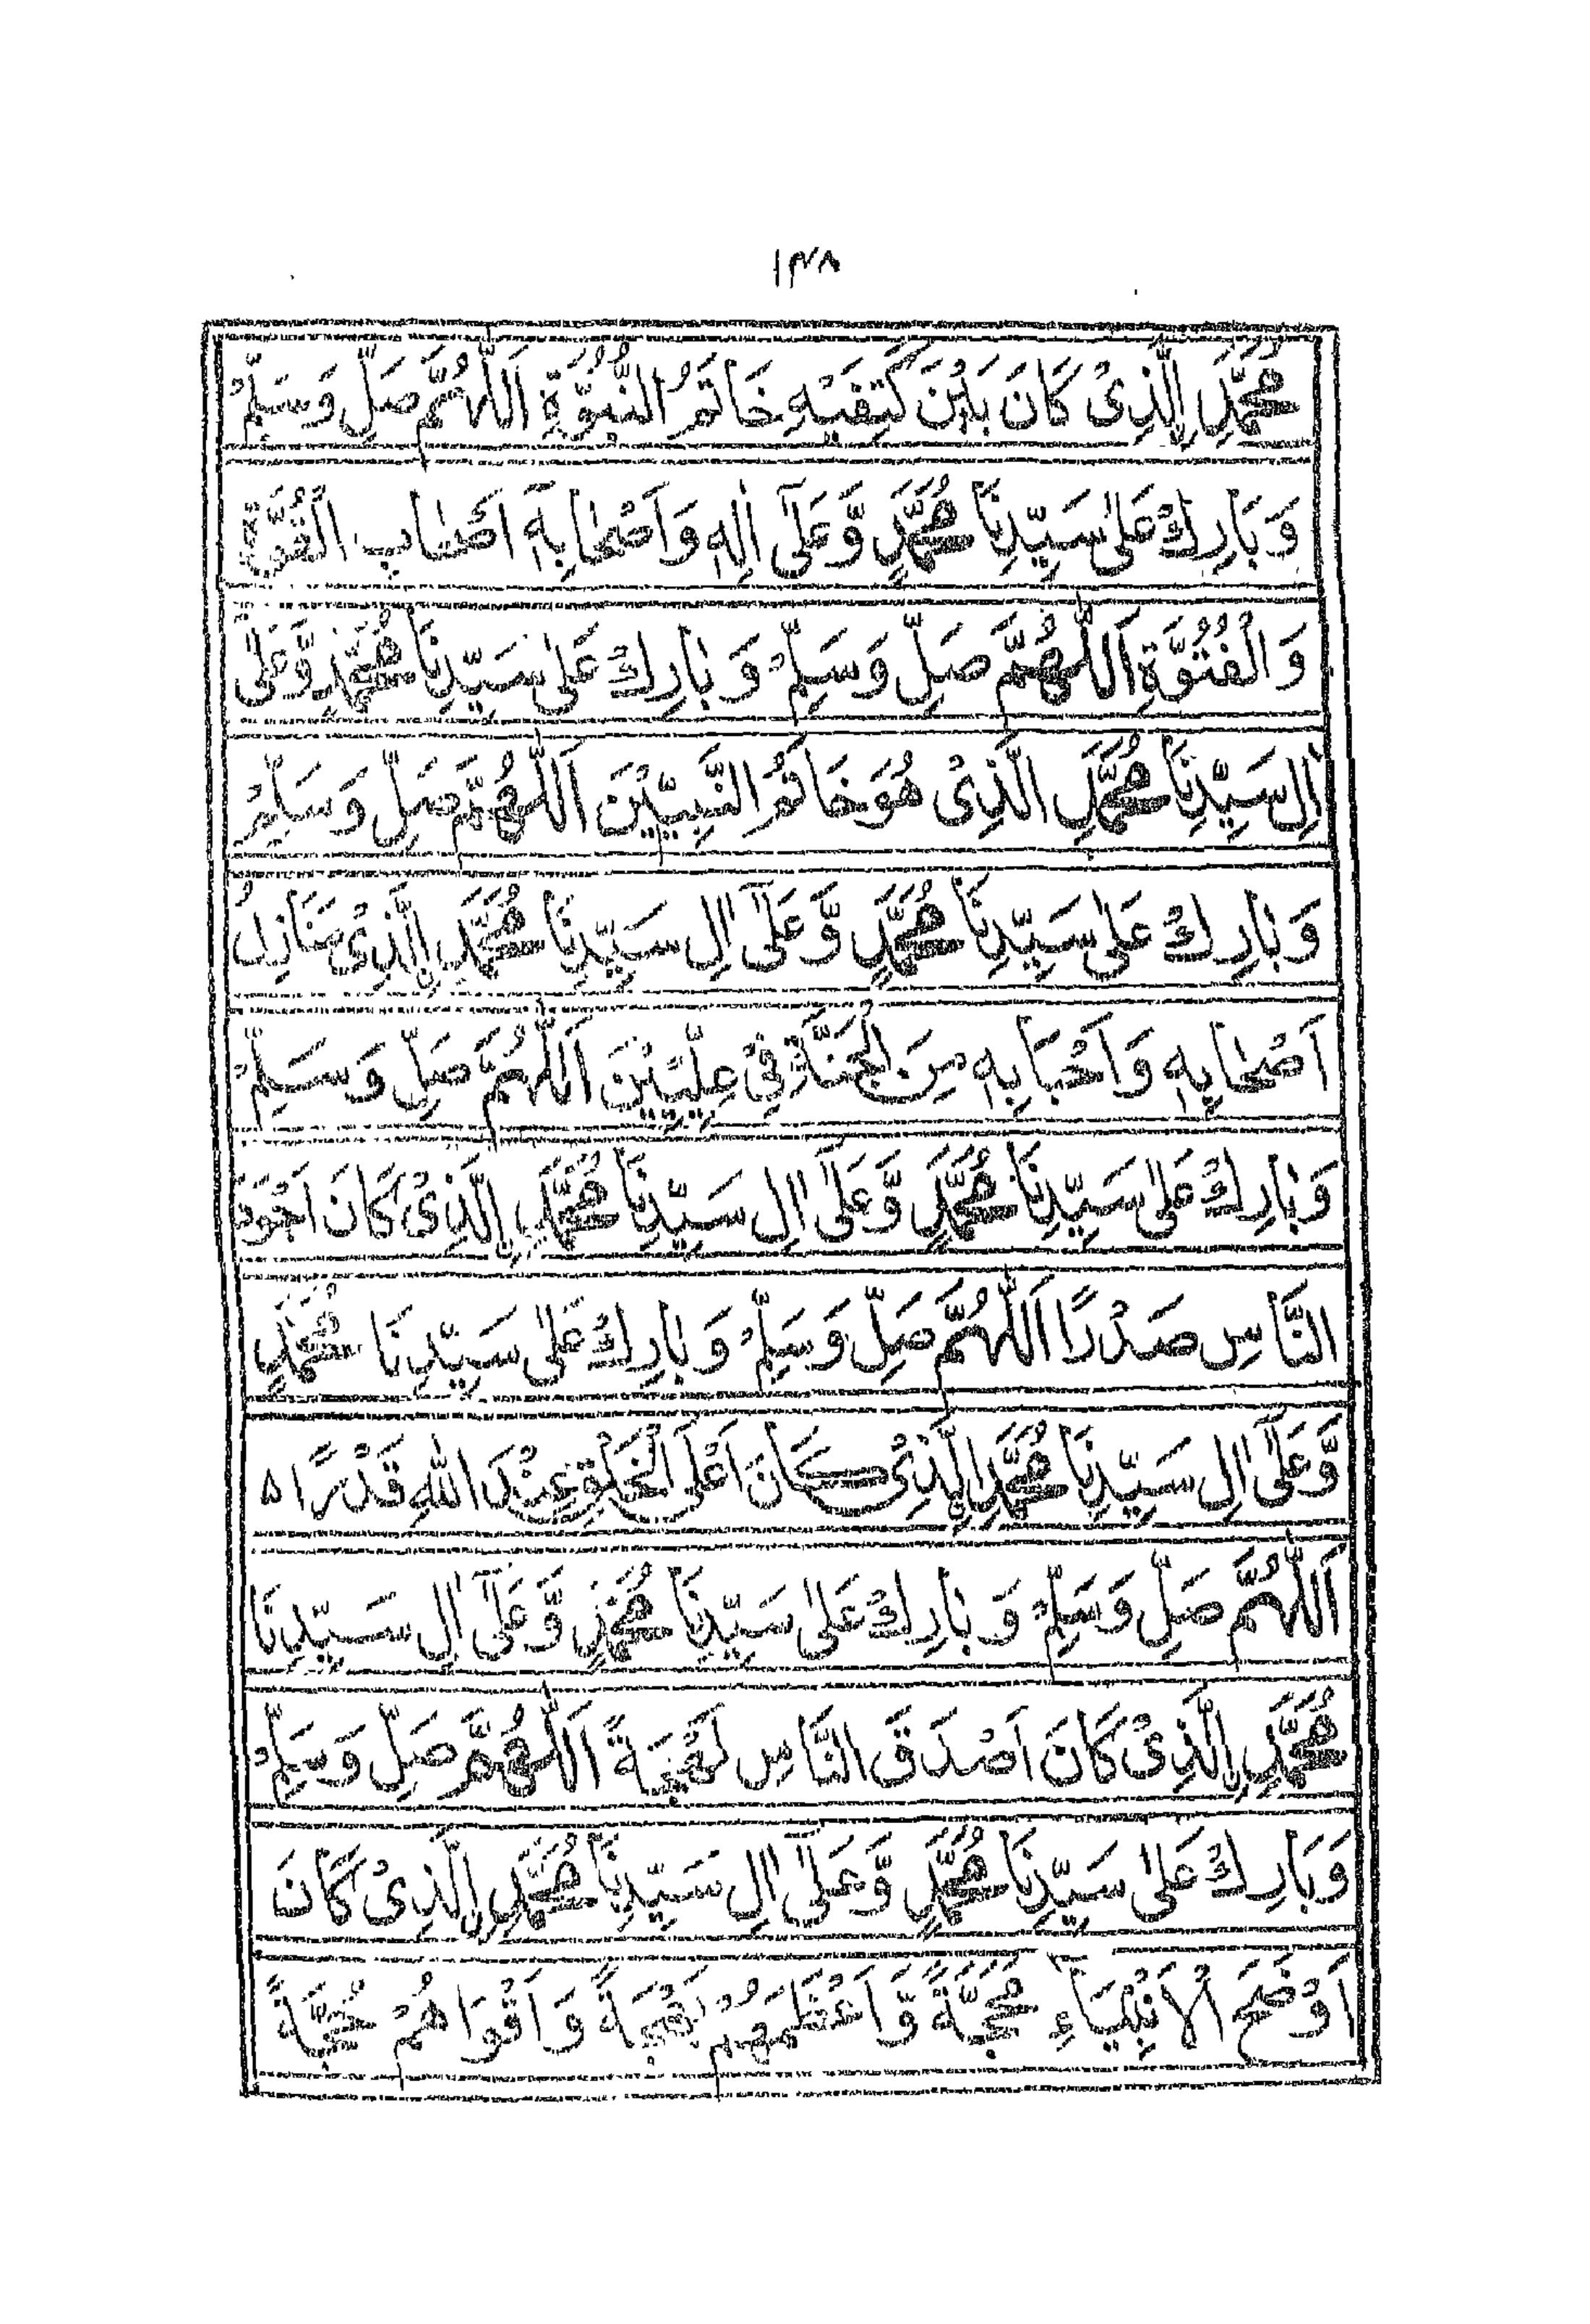 ۱۴۸
مُحَمَّدِ اِلَّذِیْ كَانَ بَیْنَ كَتِفَیْهِ خَاتَمُ النُّبُوَّةِ اَللّٰهُمَّ صَلِّ وَسَلِّمْ
وَبَارِكْ عَلٰی سَیِّدِنَا مُحَمَّدٍ وَّعَلٰٓی اٰلِهٖ وَاَصْحَابِهٖٓ اَصْحَابِ الْقُوَّةِ
وَالْفُتُوَّةِ اَللّٰهُمَّ صَلِّ وَسَلِّمْ وَبَارِكْ عَلٰی سَیِّدِنَا مُحَمَّدٍ وَّعَلٰٓی
اٰلِ سَیِّدِنَا مُحَمَّدِ الَّذِیْ هُوَ خَاتَمُ النَّبِیِّیْنَ اَللّٰهُمَّ صَلِّ وَسَلِّمْ
وَبَارِكْ عَلٰی سَیِّدِنَا مُحَمَّدٍ وَّعَلٰٓی اٰلِ سَیِّدِنَا مُحَمَّدِ اِلَّذِیْ مَنَازِلُ
اَصْحَابِهٖ وَاَحْبَابِهٖ مِنَ الْجَنَّةِ فِیْ عِلِّیِّیْنَ اَللّٰهُمَّ صَلِّ وَسَلِّمْ
وَبَارِكْ عَلٰی سَیِّدِنَا مُحَمَّدٍ وَّعَلٰٓی اٰلِ سَیِّدِنَا مُحَمَّدِ اِلَّذِیْ كَانَ اَجْوَدَ
النَّاسِ صَدْرًا اَللّٰهُمَّ صَلِّ وَسَلِّمْ وَبَارِكْ عَلٰی سَیِّدِنَا مُحَمَّدٍ
وَّعَلٰٓی اٰلِ سَیِّدِنَا مُحَمَّدِ اِلَّذِیْ كَانَ اَعْلَی الْخَلْقِ عِنْدَ اللهِ قَدْرًا ۵
اَللّٰهُمَّ صَلِّ وَسَلِّمْ وَبَارِكْ عَلٰی سَیِّدِنَا مُحَمَّدٍ وَّعَلٰٓی اٰلِ سَیِّدِنَا
مُحَمَّدِ اِلَّذِیْ كَانَ اَصْدَقَ النَّاسِ لَهْجَةً اَللّٰهُمَّ صَلِّ وَسَلِّمْ
وَبَارِكْ عَلٰی سَیِّدِنَا مُحَمَّدٍ وَّعَلٰٓی اٰلِ سَیِّدِنَا مُحَمَّدِ اِلَّذِیْ كَانَ
اَوْضَحَ الْاَنْبِیَاءِ مُحَجَّةً وَّاَعْظَمَهُمْ وَاَقْوَاهُمْ